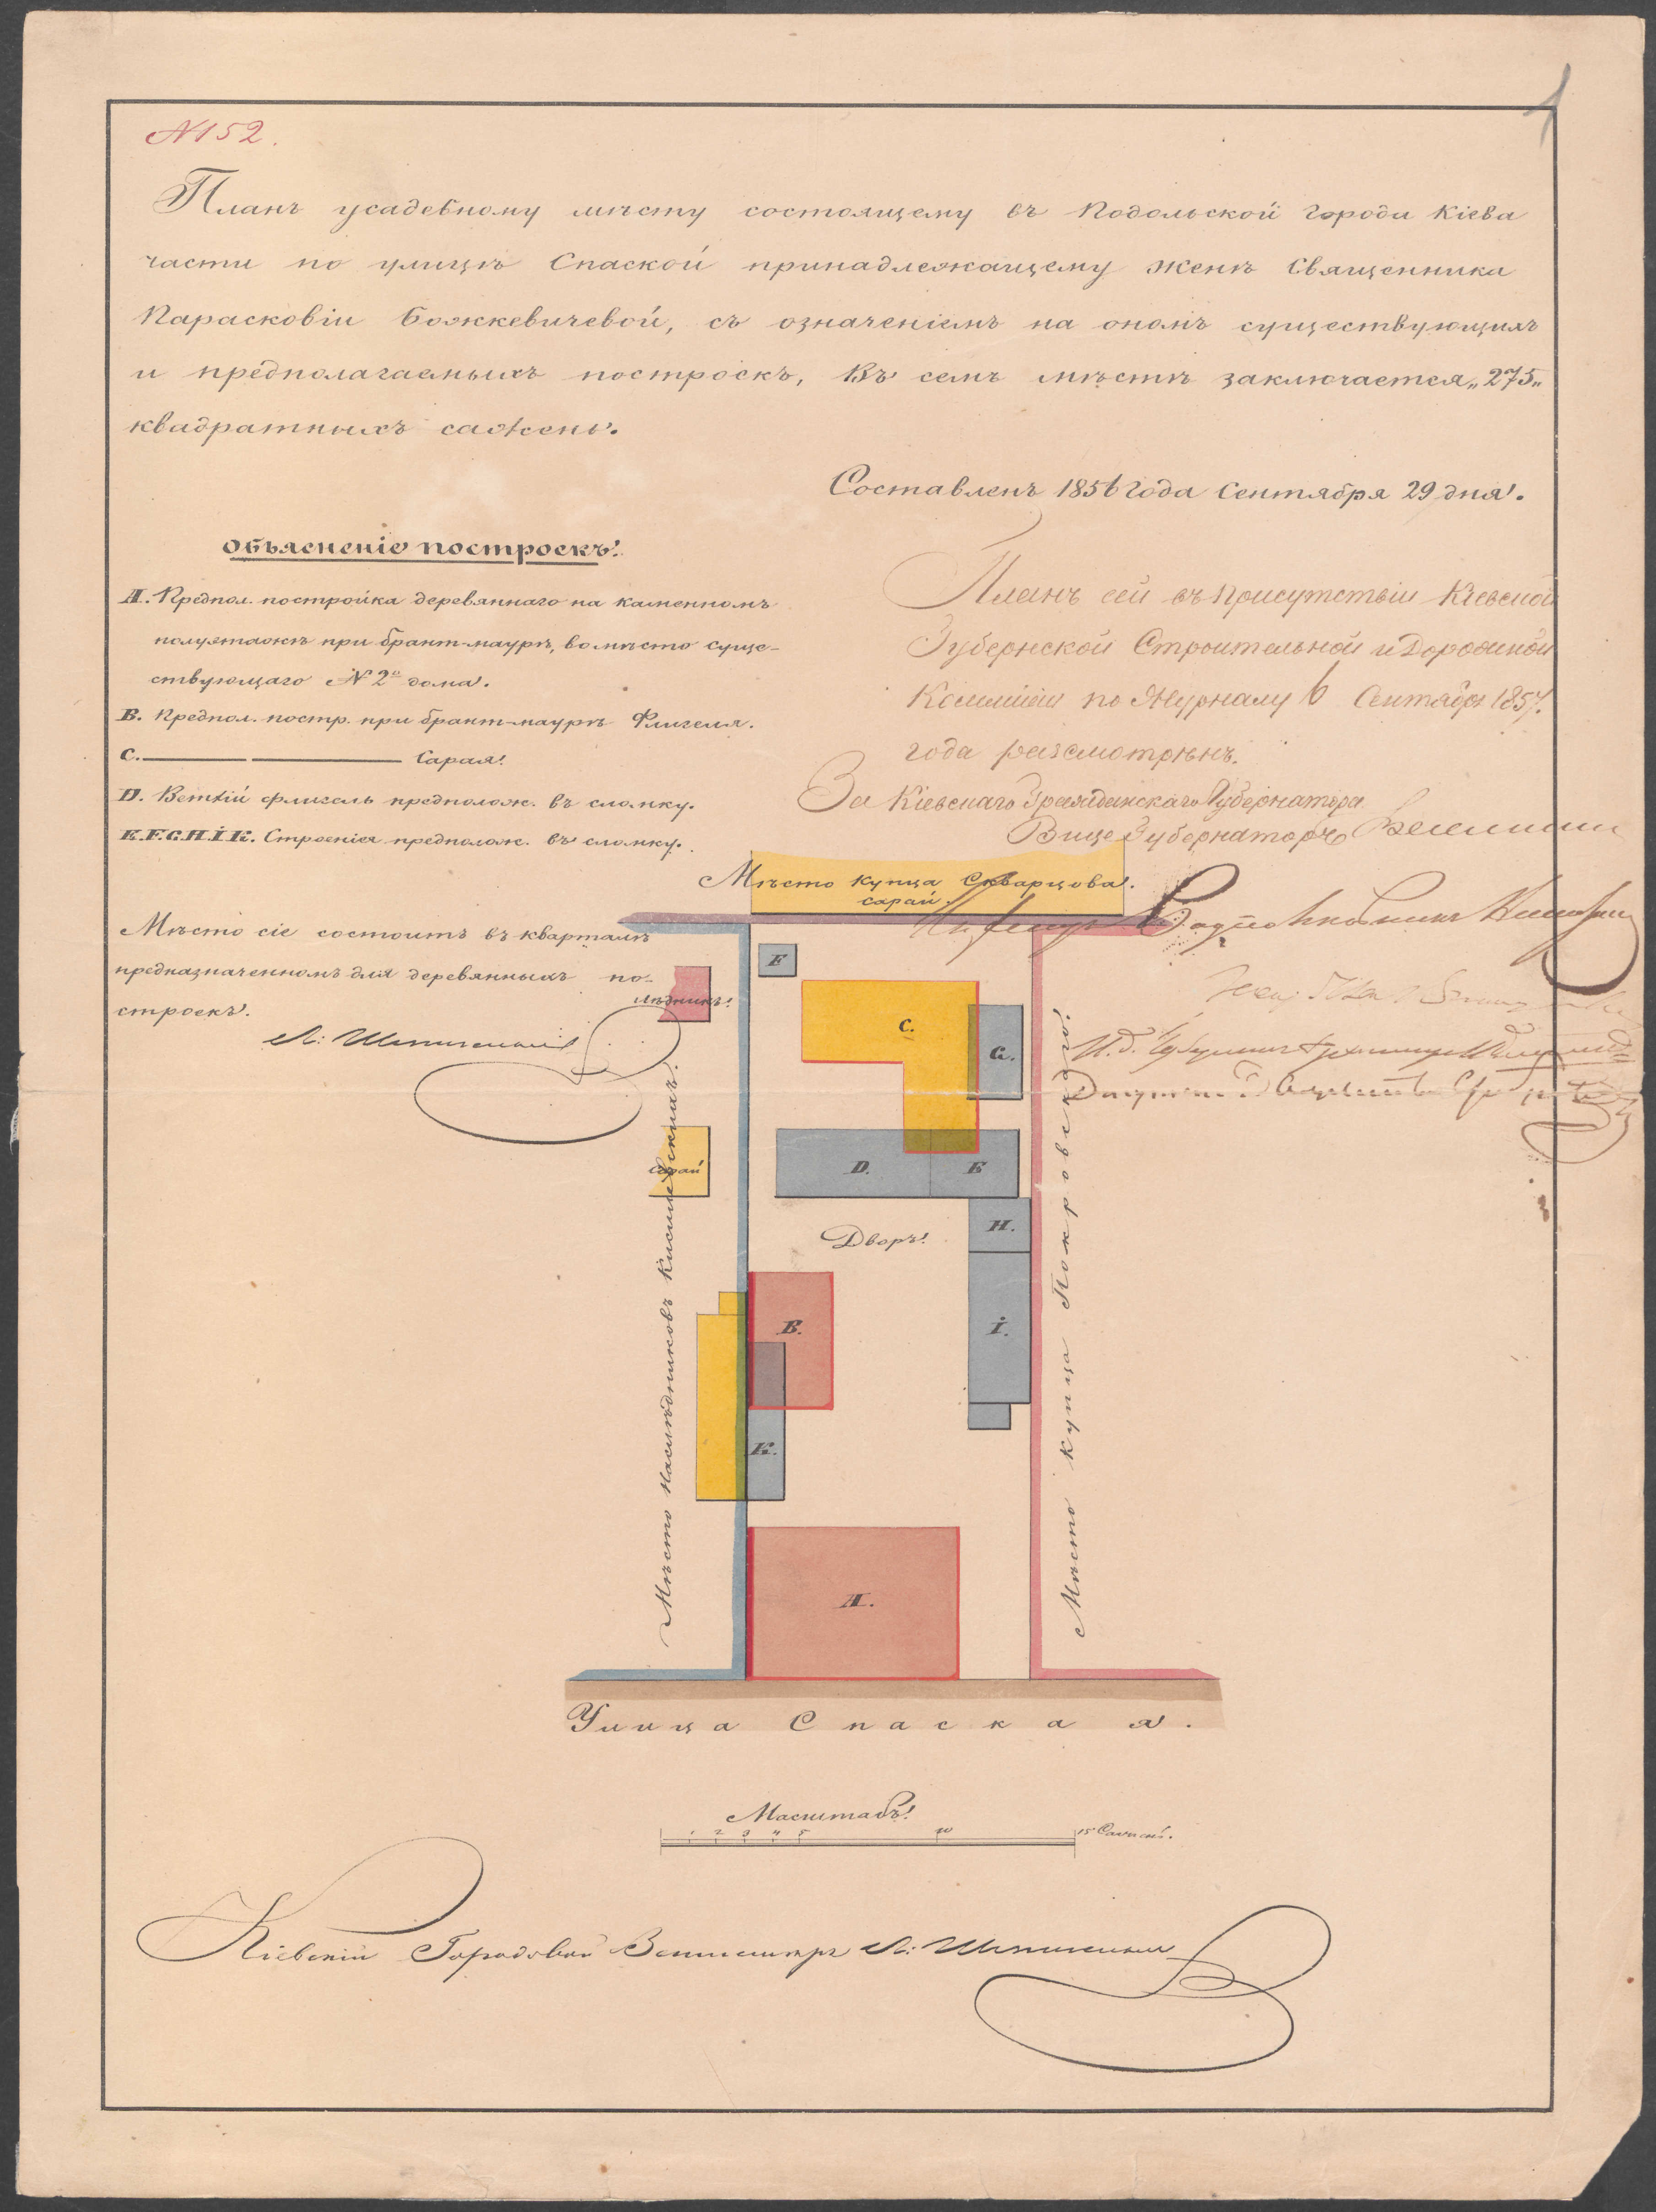 N 152.
Планъ усадебному мѣсту состоящему въ Подольской города Кіева
части по улицѣ Спаской принадлежащему женѣ Священника
Парасковіи Божкевичевой, съ означеніемъ на ономъ существующихъ
и предполагаемыхъ построекъ, Въ семъ мѣстѣ заключается „275„
квадратныхъ сажень.
Составленъ 1856 года Сентября 29 дня.
Объясненіе построекъ.
A. Предпол. постройка деревяннаго на каменномъ
полуэтажѣ при брант-маурѣ, вомѣсто суще-
ствующаго N 2º дома.
B. Предпол. постр. при брант-маурѣ Флигеля.
C. Сарая.
D. Ветхій флигель предполож. въ сломку.
E. F. G. H. I. K. Строенія предполож. въ сломку.
Планъ сей въ присутствіи Кіевской
Губернской Строительной и Дорожной
Коммисіи по Журналу 6 Сентября 1857.
года разсмотрѣнъ.
За Кіевскаго Гражданскаго Губернатора
Вице Губернаторъ
Мѣсто купца Скварцова.
сарай.
Мѣсто сіе состоитъ въ кварталѣ
предназначенномъ для деревянныхъ по-
строекъ.
Ледникъ.
F
C.
G.
Сарай
D.
E
H.
Дворъ.
B.
I.
K.
A.
Мѣсто наслѣдниковъ
Мѣсто купца Покровскаго.
Улица Спаская.
Масштабъ.
1 2 3 4 5 10 15 Сажен.
Кіевскій Городовой